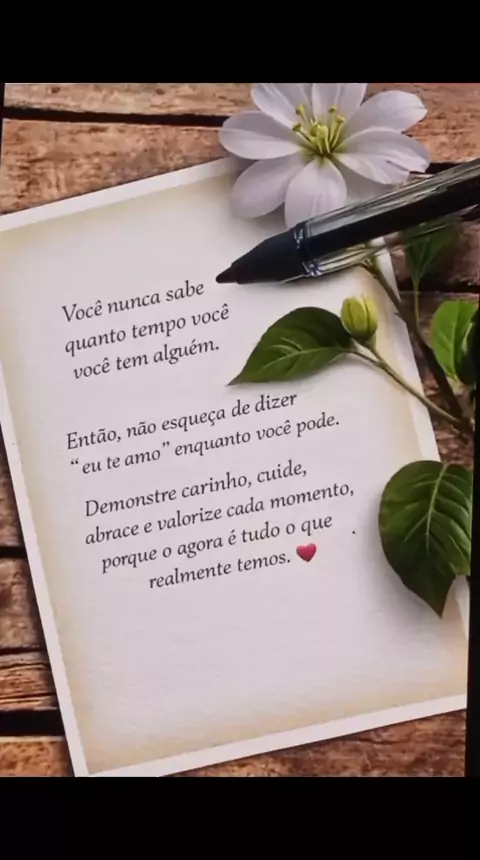 Você nunca sabe
quanto tempo você
você tem alguém.
Então, não esqueça de dizer
“eu te amo” enquanto você pode.
Demonstre carinho, cuide,
abrace e valorize cada momento,
porque o agora é tudo o que
realmente temos. ❤️